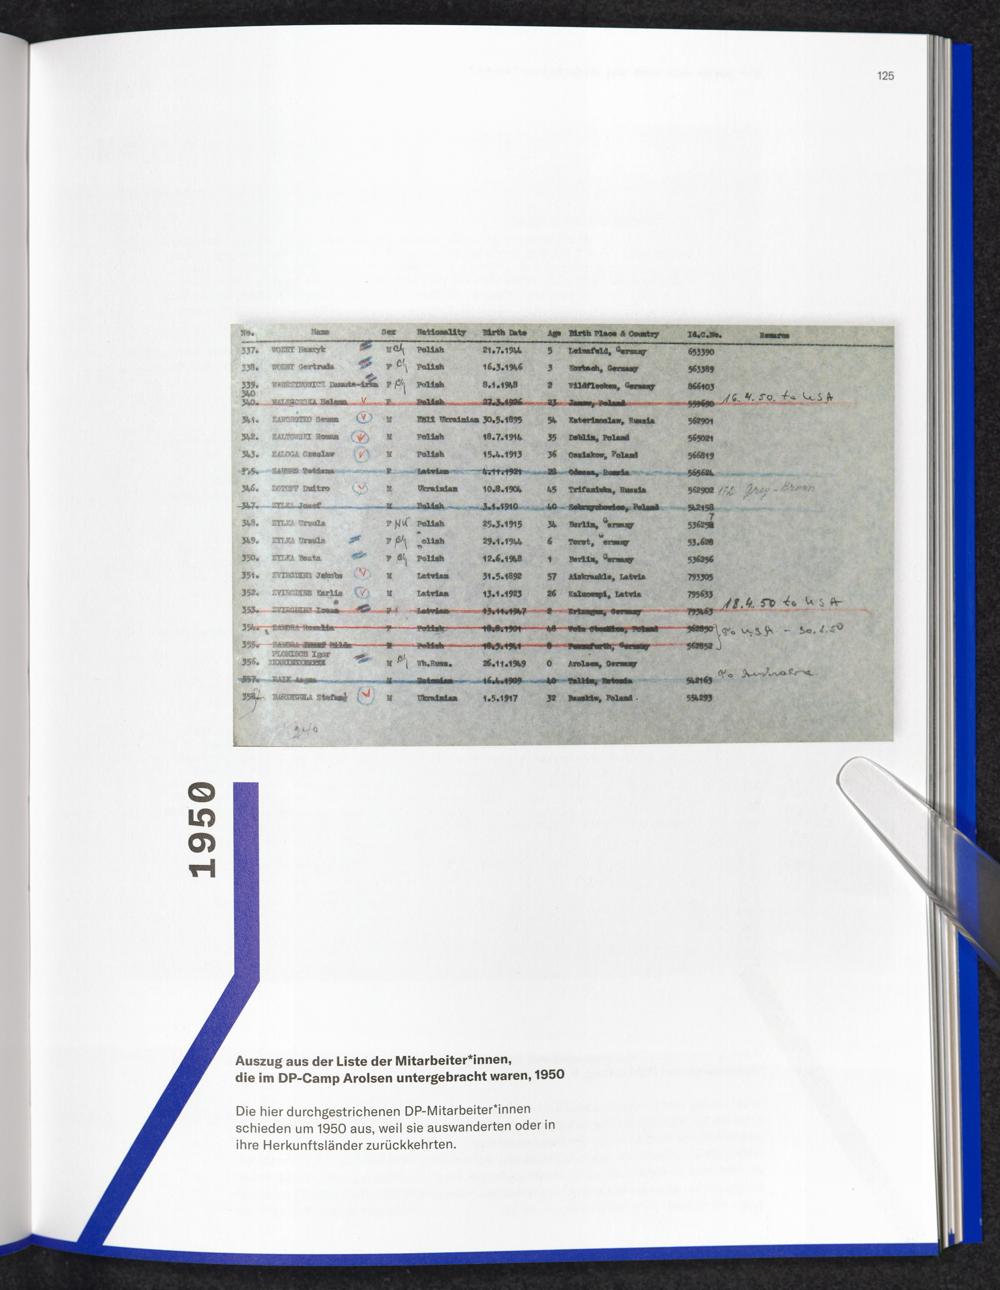 125
No. Name Sex Nationality Birth Date Age Birth Place & Country Id.C.No. Remarks
337. WOZNY Henryk M Ch Polish 21.7.1944 5 Leinefeld, Germany 653390
338. WOZNY Gertruda F Ch Polish 16.3.1946 3 Korbach, Germany 563389
339. Danuta-Irma F Ch Polish 8.1.1948 2 Wildflecken, Germany 866103
340
340. Helena F Polish 27.3.1926 23 Poland 16.4.50. to USA
341. M Ukrainian 30.5.1895 54 Katerinoslaw, Russia 562901
342. ZALTOWSKI Roman M Polish 18.7.1914 35 Deblin, Poland 565021
343. ZALOGA Czeslaw M Polish 15.4.1913 36 Osziakow, Poland 566819
Tatiana F Latvian 4.11.1921 28 Odessa, Russia 565624
346. Dmitro M Ukrainian 10.8.1904 45 Trifaniwka, Russia 562902 Grey-Brown
347. ZYLKA Josef M Polish 3.1.1910 40 Poland 542158
348. ZYLKA Ursula F Polish 25.3.1915 34 Berlin, Germany
7
349. ZYLKA Ursula F Ch olish 29.1.1944 6 ermany 53.628
350. ZYLKA Beata F Ch Polish 12.6.1948 1 Berlin, Germany 536256
351. ZVIRGDINS Jekabs M Latvian 31.5.1892 57 Aiskraukle, Latvia 793305
352. ZVIRGDINS Karlis M Latvian 13.1.1923 26 Latvia 795633
353. ZVIRGDINS F Latvian 13.11.1947 2 Erlangen, Germany 793463 18.4.50 to USA
354. ZANDRA Rozalia F Polish 18.8.1901 48 Poland 562850 To USA - 30.1.50
355. ZANDRA M Polish 18.3.1941 8 Germany 562852
Igor
356. M Ch Wh.Russ. 26.11.1949 0 Arolsen, Germany
357. RAIK M Estonian 16.4.1909 40 Tallin, Estonia 542163 To Australia
358. Stefan M Ukrainian 1.5.1917 32 Poland. 554293
240
1950
Auszug aus der Liste der Mitarbeiter*innen,
die im DP-Camp Arolsen untergebracht waren, 1950
Die hier durchgestrichenen DP-Mitarbeiter*innen
schieden um 1950 aus, weil sie auswanderten oder in
ihre Herkunftsländer zurückkehrten.